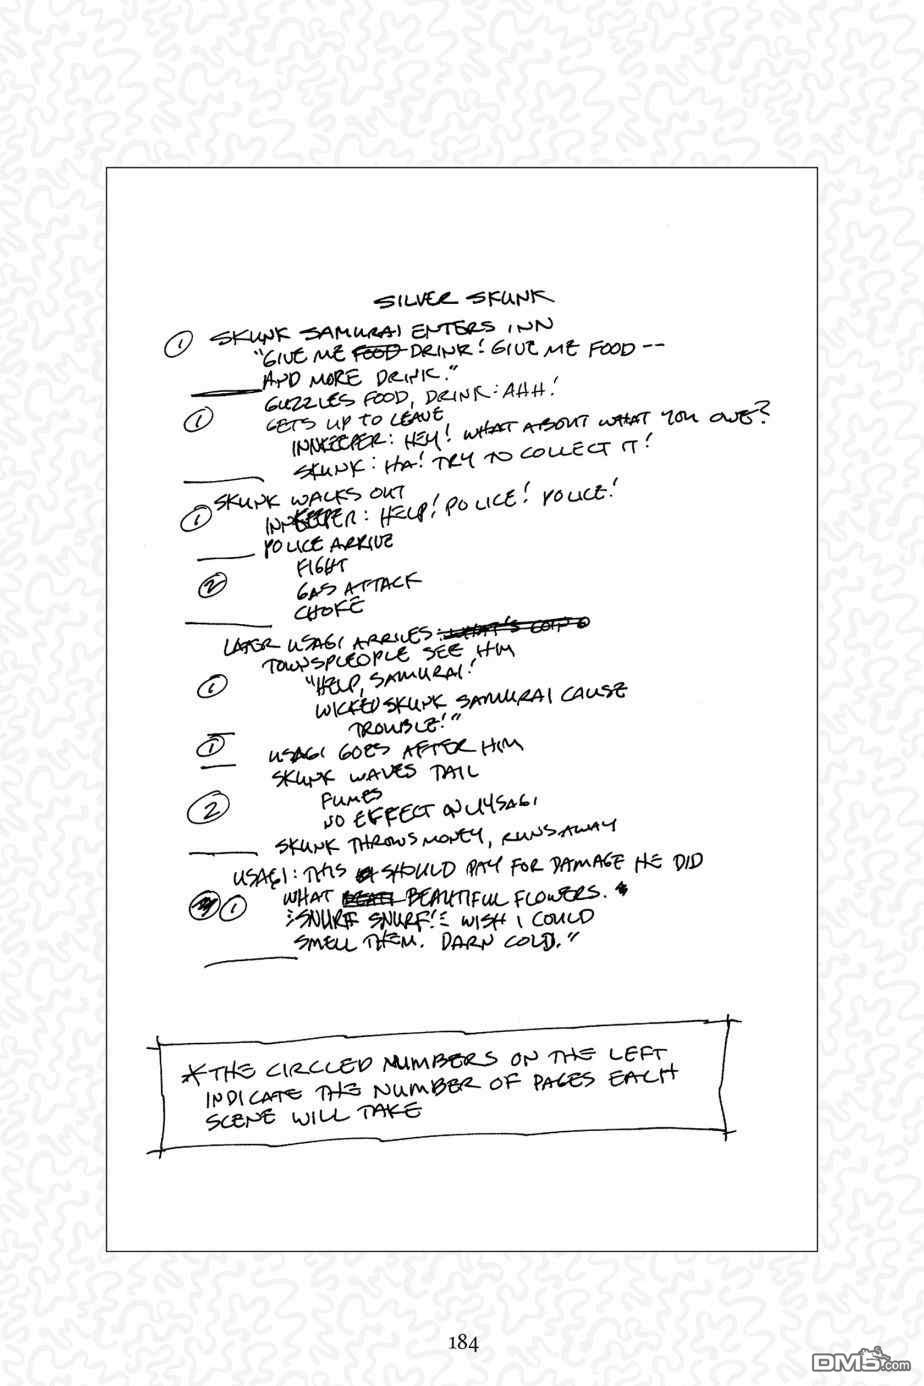 SILVER SKUNK
① SKUNK SAMURAI ENTERS INN
"GIVE ME FOOD DRINK! GIVE ME FOOD --
AND MORE DRINK."
GUZZLES FOOD, DRINK: AHH!
① GETS UP TO LEAVE
INNKEEPER: HEY! WHAT ABOUT WHAT YOU OWE?
SKUNK: HA! TRY TO COLLECT IT!
SKUNK WALKS OUT
① INNKEEPER: HELP! POLICE! POLICE!
POLICE ARRIVE
FIGHT
② GAS ATTACK
CHOKE
LATER USAGI ARRIVES: WHAT'S
TOWNSPLEOPLE SEE HIM
① "HELP, SAMURAI!
WICKED SKUNK SAMURAI CAUSE
TROUBLE!"
① USAGI GOES AFTER HIM
SKUNK WAVES TAIL
② FUMES
NO EFFECT ON USAGI
SKUNK THROWS MONEY, RUNS AWAY
USAGI: THIS SHOULD PAY FOR DAMAGE HE DID
① WHAT BEAUTIFUL FLOWERS.
SNURF SNURF! WISH I COULD
SMELL THEM. DARN COLD."
*THE CIRCLED NUMBERS ON THE LEFT
INDICATE THE NUMBER OF PAGES EACH
SCENE WILL TAKE
184
DM5.com